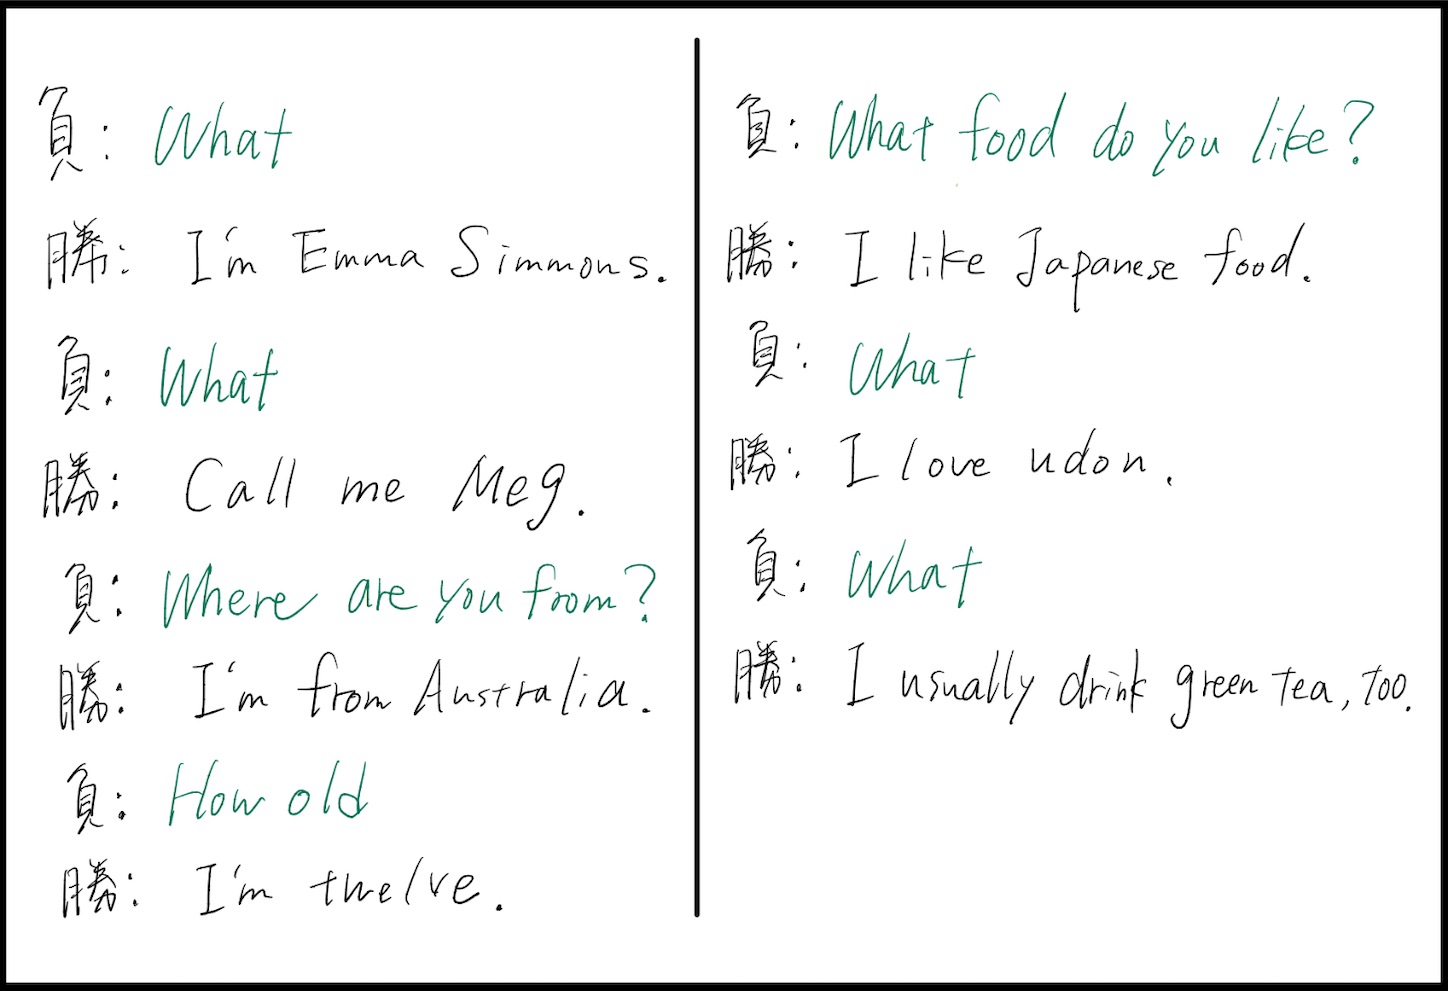 負: What
勝: I'm Emma Simmons.
負: What
勝: Call me Meg.
負: Where are you from?
勝: I'm from Australia.
負: How old
勝: I'm twelve.
負: What food do you like?
勝: I like Japanese food.
負: What
勝: I love udon.
負: What
勝: I usually drink green tea, too.